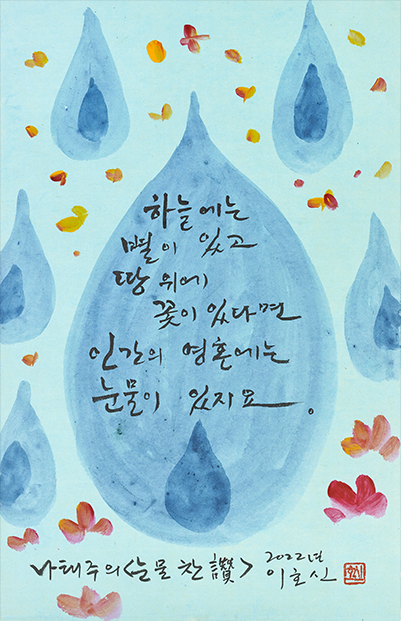 하늘에는
별이 있고
땅 위에
꽃이 있다면
인간의 영혼에는
눈물이 있지요.
나태주의 <눈물 찬 讚>
2022년
이호신